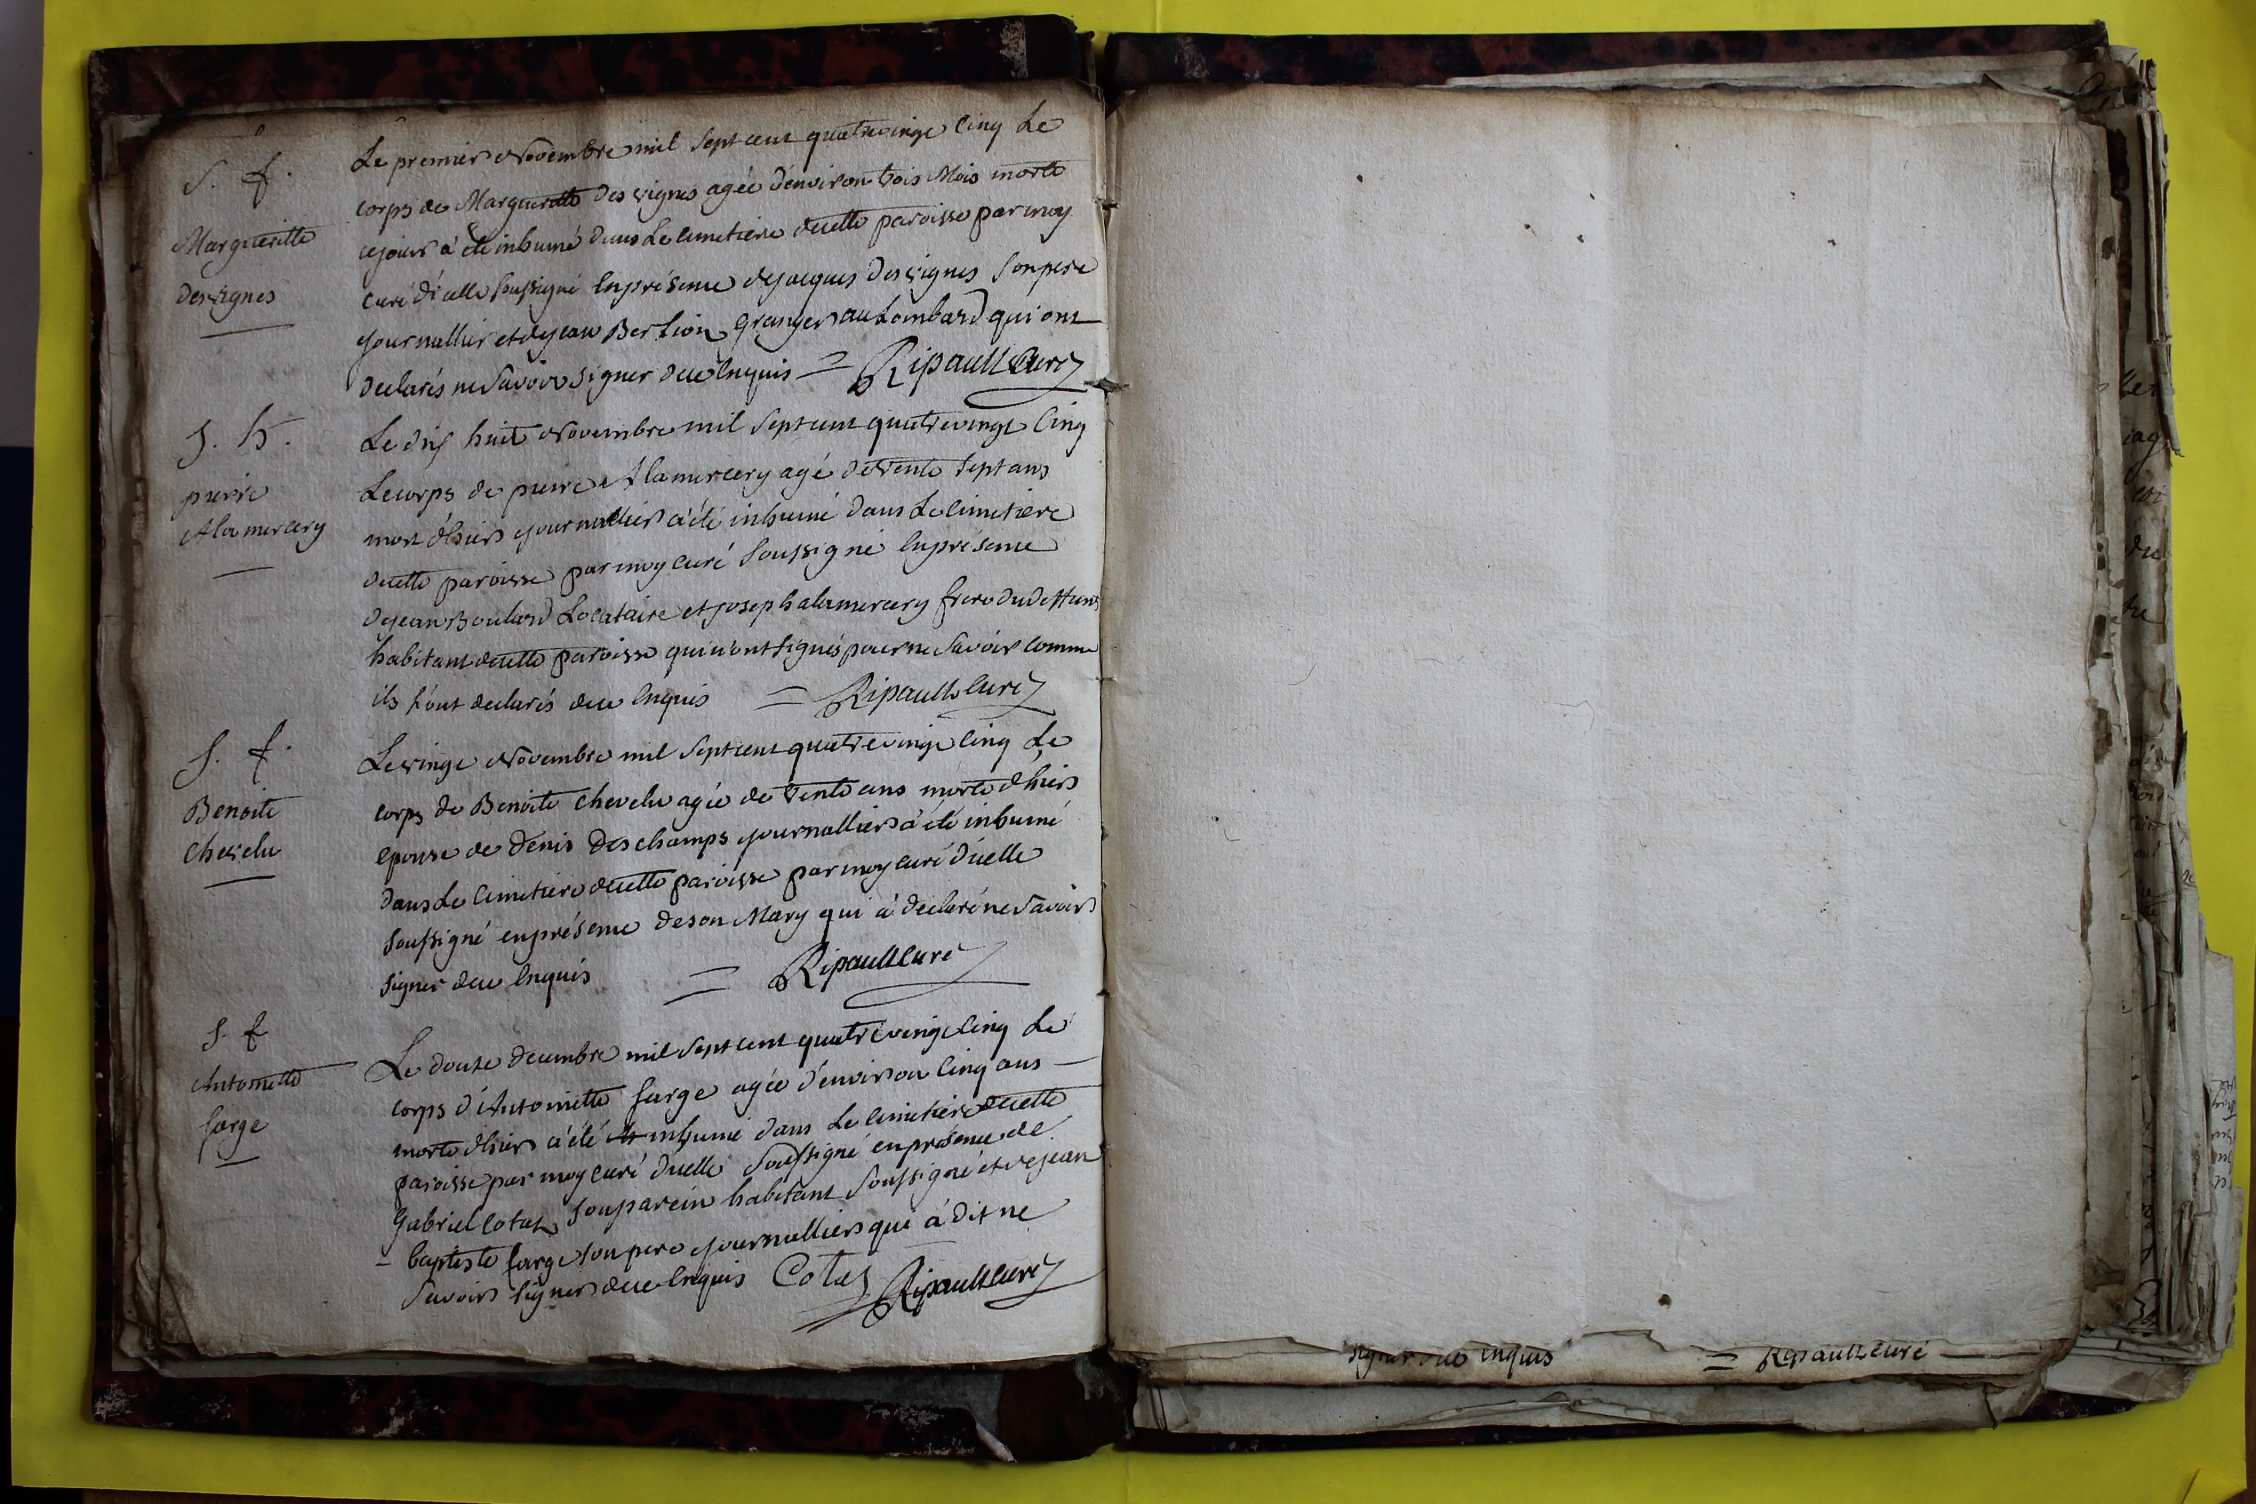 S. f.
Margueritte
desvignes
Le premier Novembre mil sept cent quatrevingt cinq Le
corps de Margueritte desvignes agée d'environ trois Mois morte
cejour à été inhumé dans Le cimetiere decette paroisse par moy
curé d'icelle soussigné en présence dejacques desvignes son pere
journallier et dejean Berlion granger au Lombard qui ont
declarés ne savoir signer dece enquis = Ripault curé
S. h.
pierre
Alamercery
Le dix huit Novembre mil sept cent quatrevingt cinq
Le corps de pierre Alamercery agé de trente sept ans
mort d'hier journallier à été inhumé dans Le cimetiere
decette paroisse par moy curé soussigné en présence
dejean Boulard Locataire et joseph alamercery frere du deffunt
habitant decette paroisse qui n'ont signés pour ne savoir comme
ils l'ont declarés dece enquis = Ripault curé
S. f.
Benoite
chevelu
Le vingt Novembre mil sept cent quatrevingt cinq Le
corps de Benoite chevelu agée de trente ans morte d'hier
epouse de denis deschamps journallier à été inhumé
dans Le cimetiere decette paroisse par moy curé d'icelle
soussigné en présence de son Mary qui à declaré ne savoir
signer dece enquis = Ripault curé
S. f
Antoinette
farge
Le douze decembre mil sept cent quatrevingt cinq Le
corps d'Antoinette farge agée d'environ cinq ans
morte d'hier à été inhumé dans Le cimetiere decette
paroisse par moy curé d'icelle soussigné en présence de
Gabriel Cotat son parein habitant soussigné et de jean
baptiste farge son pere journallier qui à dit ne
savoir signer dece enquis Cotat Ripault curé
signer dece enquis = Ripault curé